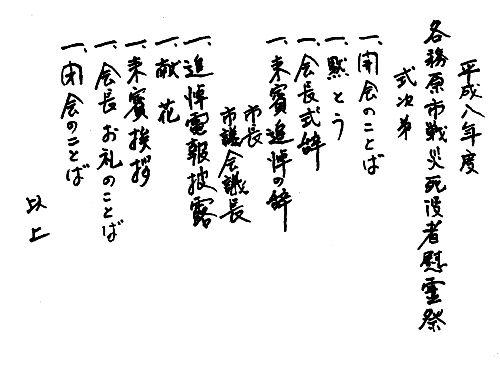 平成八年度
各務原市戦災死没者慰霊祭
式次第
一、開会のことば
一、黙とう
一、会長式辞
一、来賓追悼の辞
市長
市議会議長
一、追悼電報披露
一、献花
一、来賓挨拶
一、会長お礼のことば
一、閉会のことば
以上